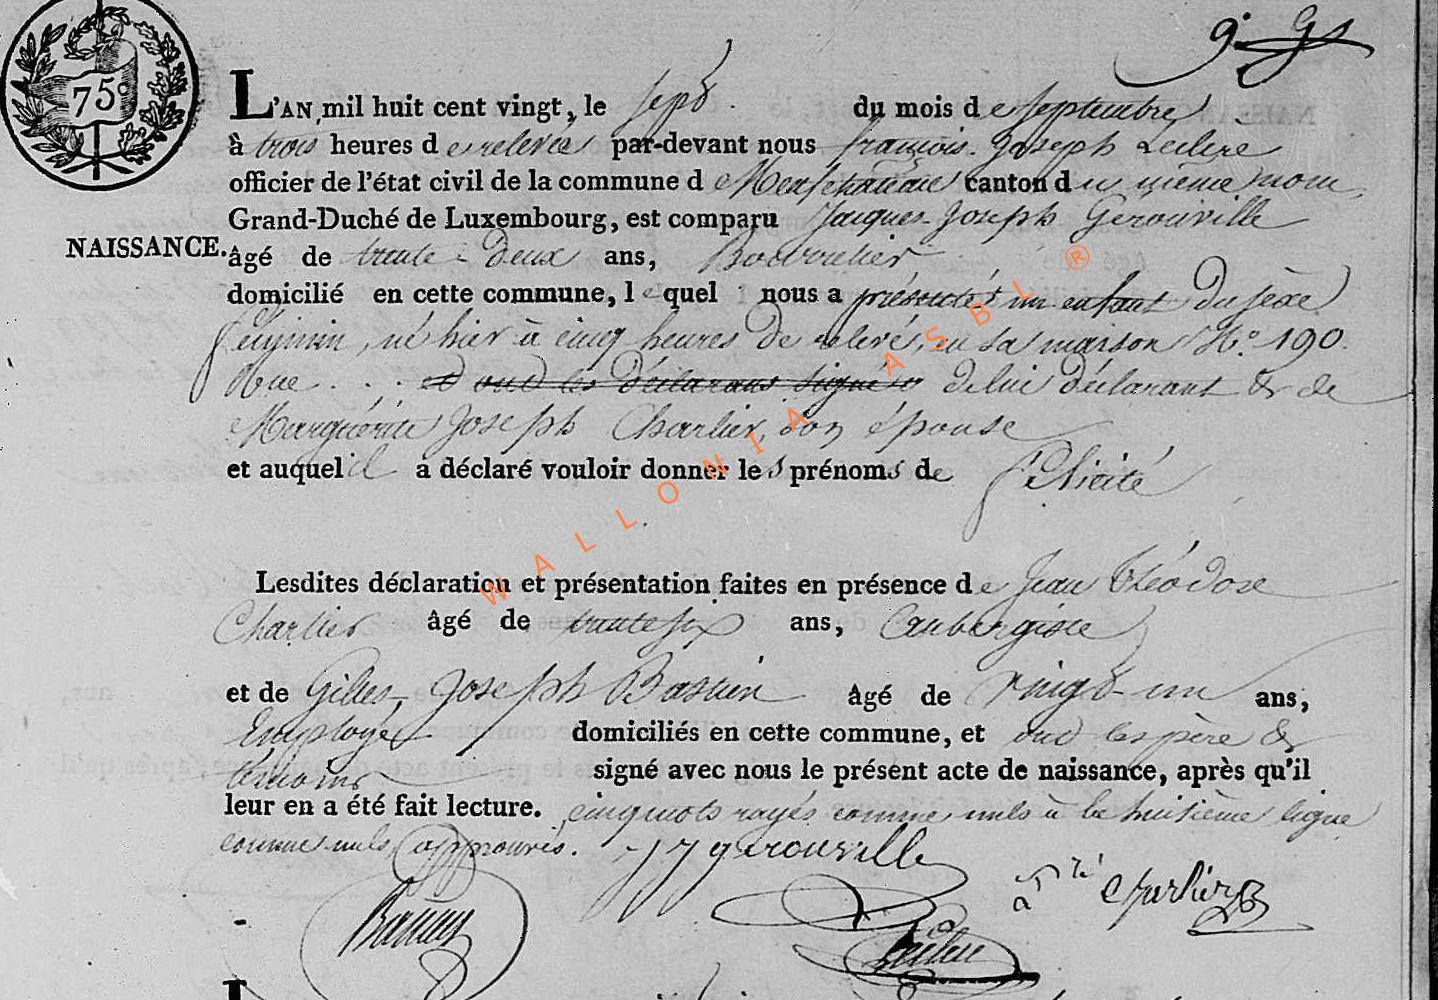 75c
L'AN mil huit cent vingt, le sept du mois de septembre
à trois heures de relevée par-devant nous françois Joseph Leclere
officier de l'état civil de la commune de Neufchateau canton du même nom,
Grand-Duché de Luxembourg, est comparu Jacques Joseph Gerouville
NAISSANCE.
âgé de trente-deux ans, Bourrelier
domicilié en cette commune, lequel nous a présenté un enfant du sexe
féminin, né hier à cinq heures de relevé, en sa maison N.o 190.
Rue . . . et ont les déclarans signé de lui déclarant & de
Marguérite Joseph Charlier, son épouse
et auquel il a déclaré vouloir donner les prénoms de félicité
Lesdites déclaration et présentation faites en présence de Jean Théodore
Charlier âgé de trente six ans, Aubergiste
et de Gilles Joseph Bastien âgé de vingt-un ans,
Employé domiciliés en cette commune, et ont les père &
témoins signé avec nous le présent acte de naissance, après qu'il
leur en a été fait lecture. cinq mots rayés comme nuls à la huitième ligne
comme nuls approuvés. JJ gerouville
charlier
WALLONIA ASBL ®